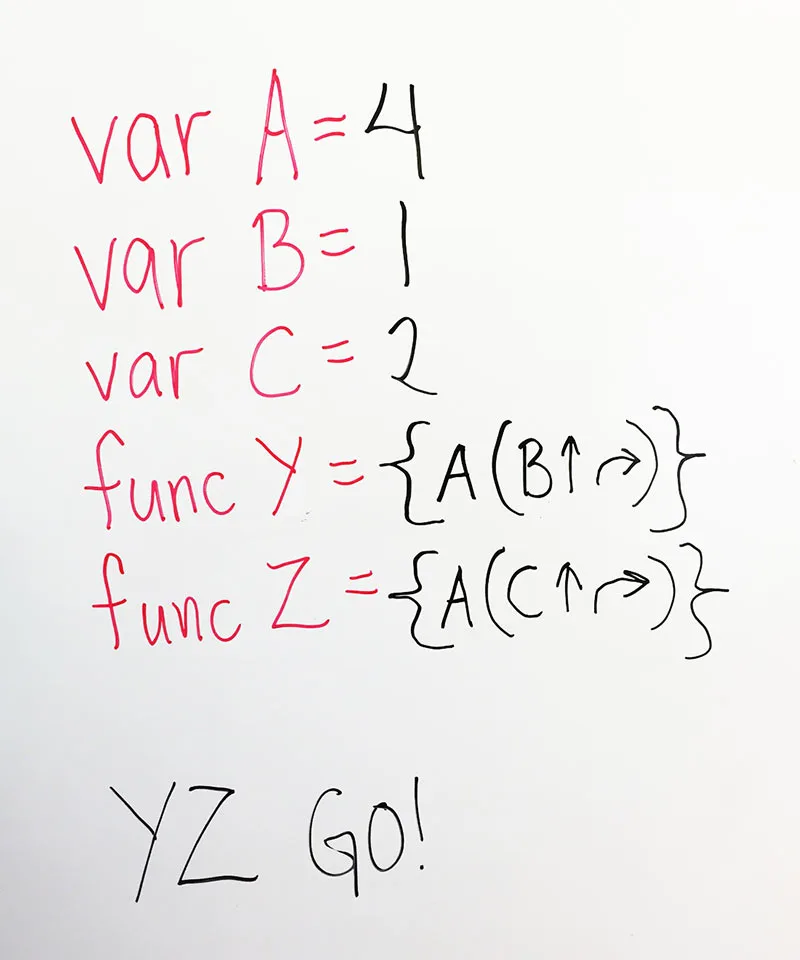 var A = 4
var B = 1
var C = 2
func Y = {A(B↑↱)}
func Z = {A(C↑↱)}
YZ GO!